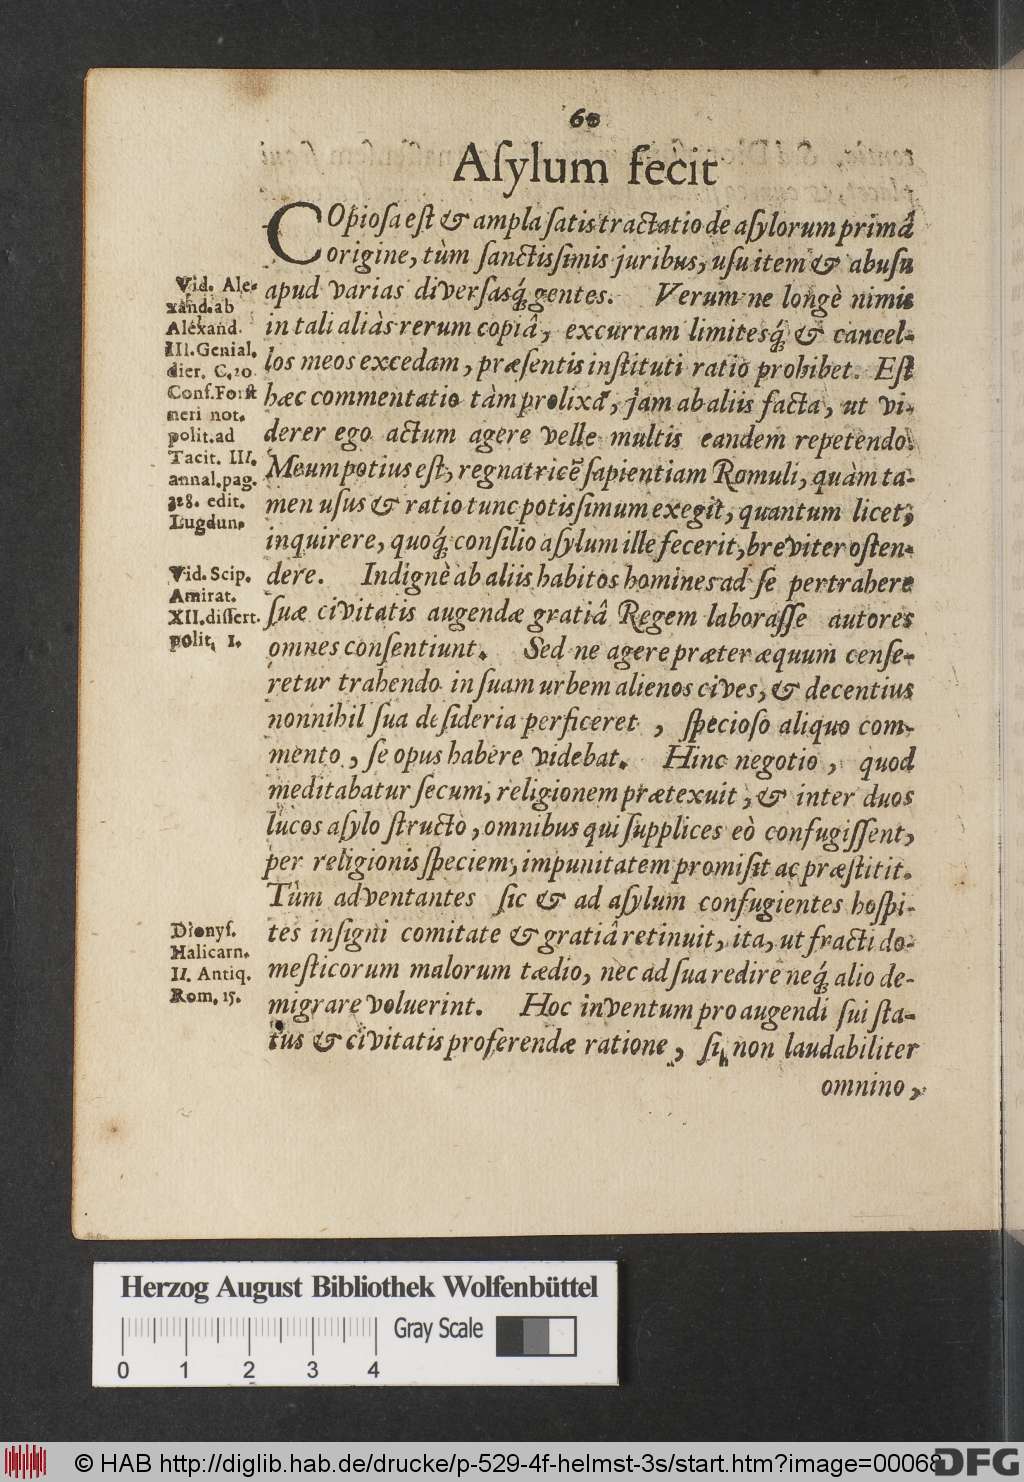 60
Aſylum fecit
COpioſa eſt & ampla ſatis tractatio de aſylorum primâ
origine, tùm ſanctisſimis juribus, uſu item & abuſu
apud varias diverſasq́; gentes. Verum ne longè nimis
in tali aliàs rerum copiâ, excurram limitesq́; & cancel-
los meos excedam, præſentis inſtituti ratio prohibet. Eſt
hæc commentatio tàm prolixâ, jam ab aliis facta, ut vi-
derer ego actum agere velle multis eandem repetendo.
Meum potius eſt, regnatricẽ ſapientiam Romuli, quàm ta-
men uſus & ratio tunc potisſimum exegit, quantum licet,
inquirere, quoq́; conſilio aſylum ille fecerit, breviter oſten-
dere. Indignè ab aliis habitos homines ad ſe pertrahere
ſuæ civitatis augendæ gratiâ Regem laboraſſe autores
omnes conſentiunt. Sed ne agere præter æquum cenſe-
retur trahendo in ſuam urbem alienos cives, & decentius
nonnihil ſua deſideria perficeret, ſpecioſo aliquo com-
mento, ſe opus habere videbat. Hinc negotio, quod
meditabatur ſecum, religionem prætexuit, & inter duos
lucos aſylo ſtructo, omnibus qui ſupplices eò confugiſſent,
per religionis ſpeciem, impunitatem promiſit ac præſtitit.
Tùm adventantes ſic & ad aſylum confugientes hoſpi-
tes inſigni comitate & gratiâ retinuit, ita, ut fracti do-
meſticorum malorum tædio, nec ad ſua redire neq́; alio de-
migrare voluerint. Hoc inventum pro augendi ſui ſta-
tus & civitatis proferendæ ratione, ſi non laudabiliter
omnino,
Vid. Ale-
xand. ab
Alexand.
III. Genial.
dier. C. 20.
Conf. Forſt
neri not.
polit. ad
Tacit. III.
annal. pag.
328. edit.
Lugdun.
Vid. Scip.
Amirat.
XII. diſſert.
polit. 1.
Dionyſ.
Halicarn.
II. Antiq.
Rom. 15.
Herzog August Bibliothek Wolfenbüttel
Gray Scale
0 1 2 3 4
© HAB http://diglib.hab.de/drucke/p-529-4f-helmst-3s/start.htm?image=00068
DFG